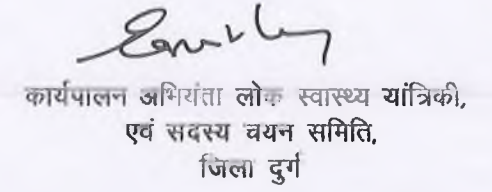 कार्यपालन अभियंता लोक स्वास्थ्य यांत्रिकी,
एवं सदस्य चयन समिति,
जिला दुर्ग